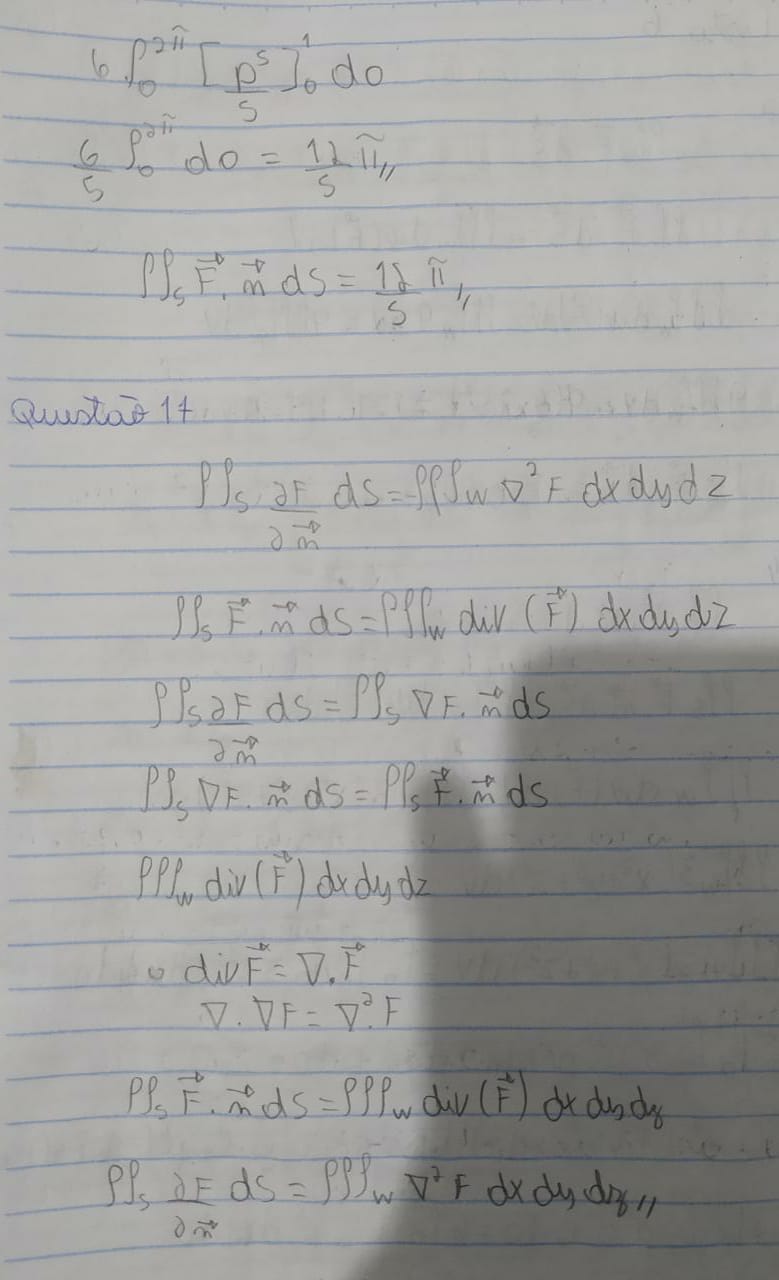 6 ∫₀^2π [ρ⁵/5]₀¹ dθ
6/5 ∫₀^2π dθ = 12/5 π //
∬ₛ F⃗ . n⃗ dS = 12/5 π //
Questão 17
∬ₛ ∂F/∂n⃗ dS = ∭w ∇²F dx dy dz
∬ₛ F⃗ . n⃗ dS = ∭w div (F⃗) dx dy dz
∬ₛ ∂F/∂n⃗ dS = ∬ₛ ∇F . n⃗ dS
∬ₛ ∇F . n⃗ dS = ∬ₛ F⃗ . n⃗ dS
∭w div (F⃗) dx dy dz
∘ div F⃗ = ∇ . F⃗
∇ . ∇F = ∇² . F
∬ₛ F⃗ . n⃗ dS = ∭w div (F⃗) dx dy dz
∬ₛ ∂F/∂n⃗ dS = ∭w ∇² F dx dy dz //